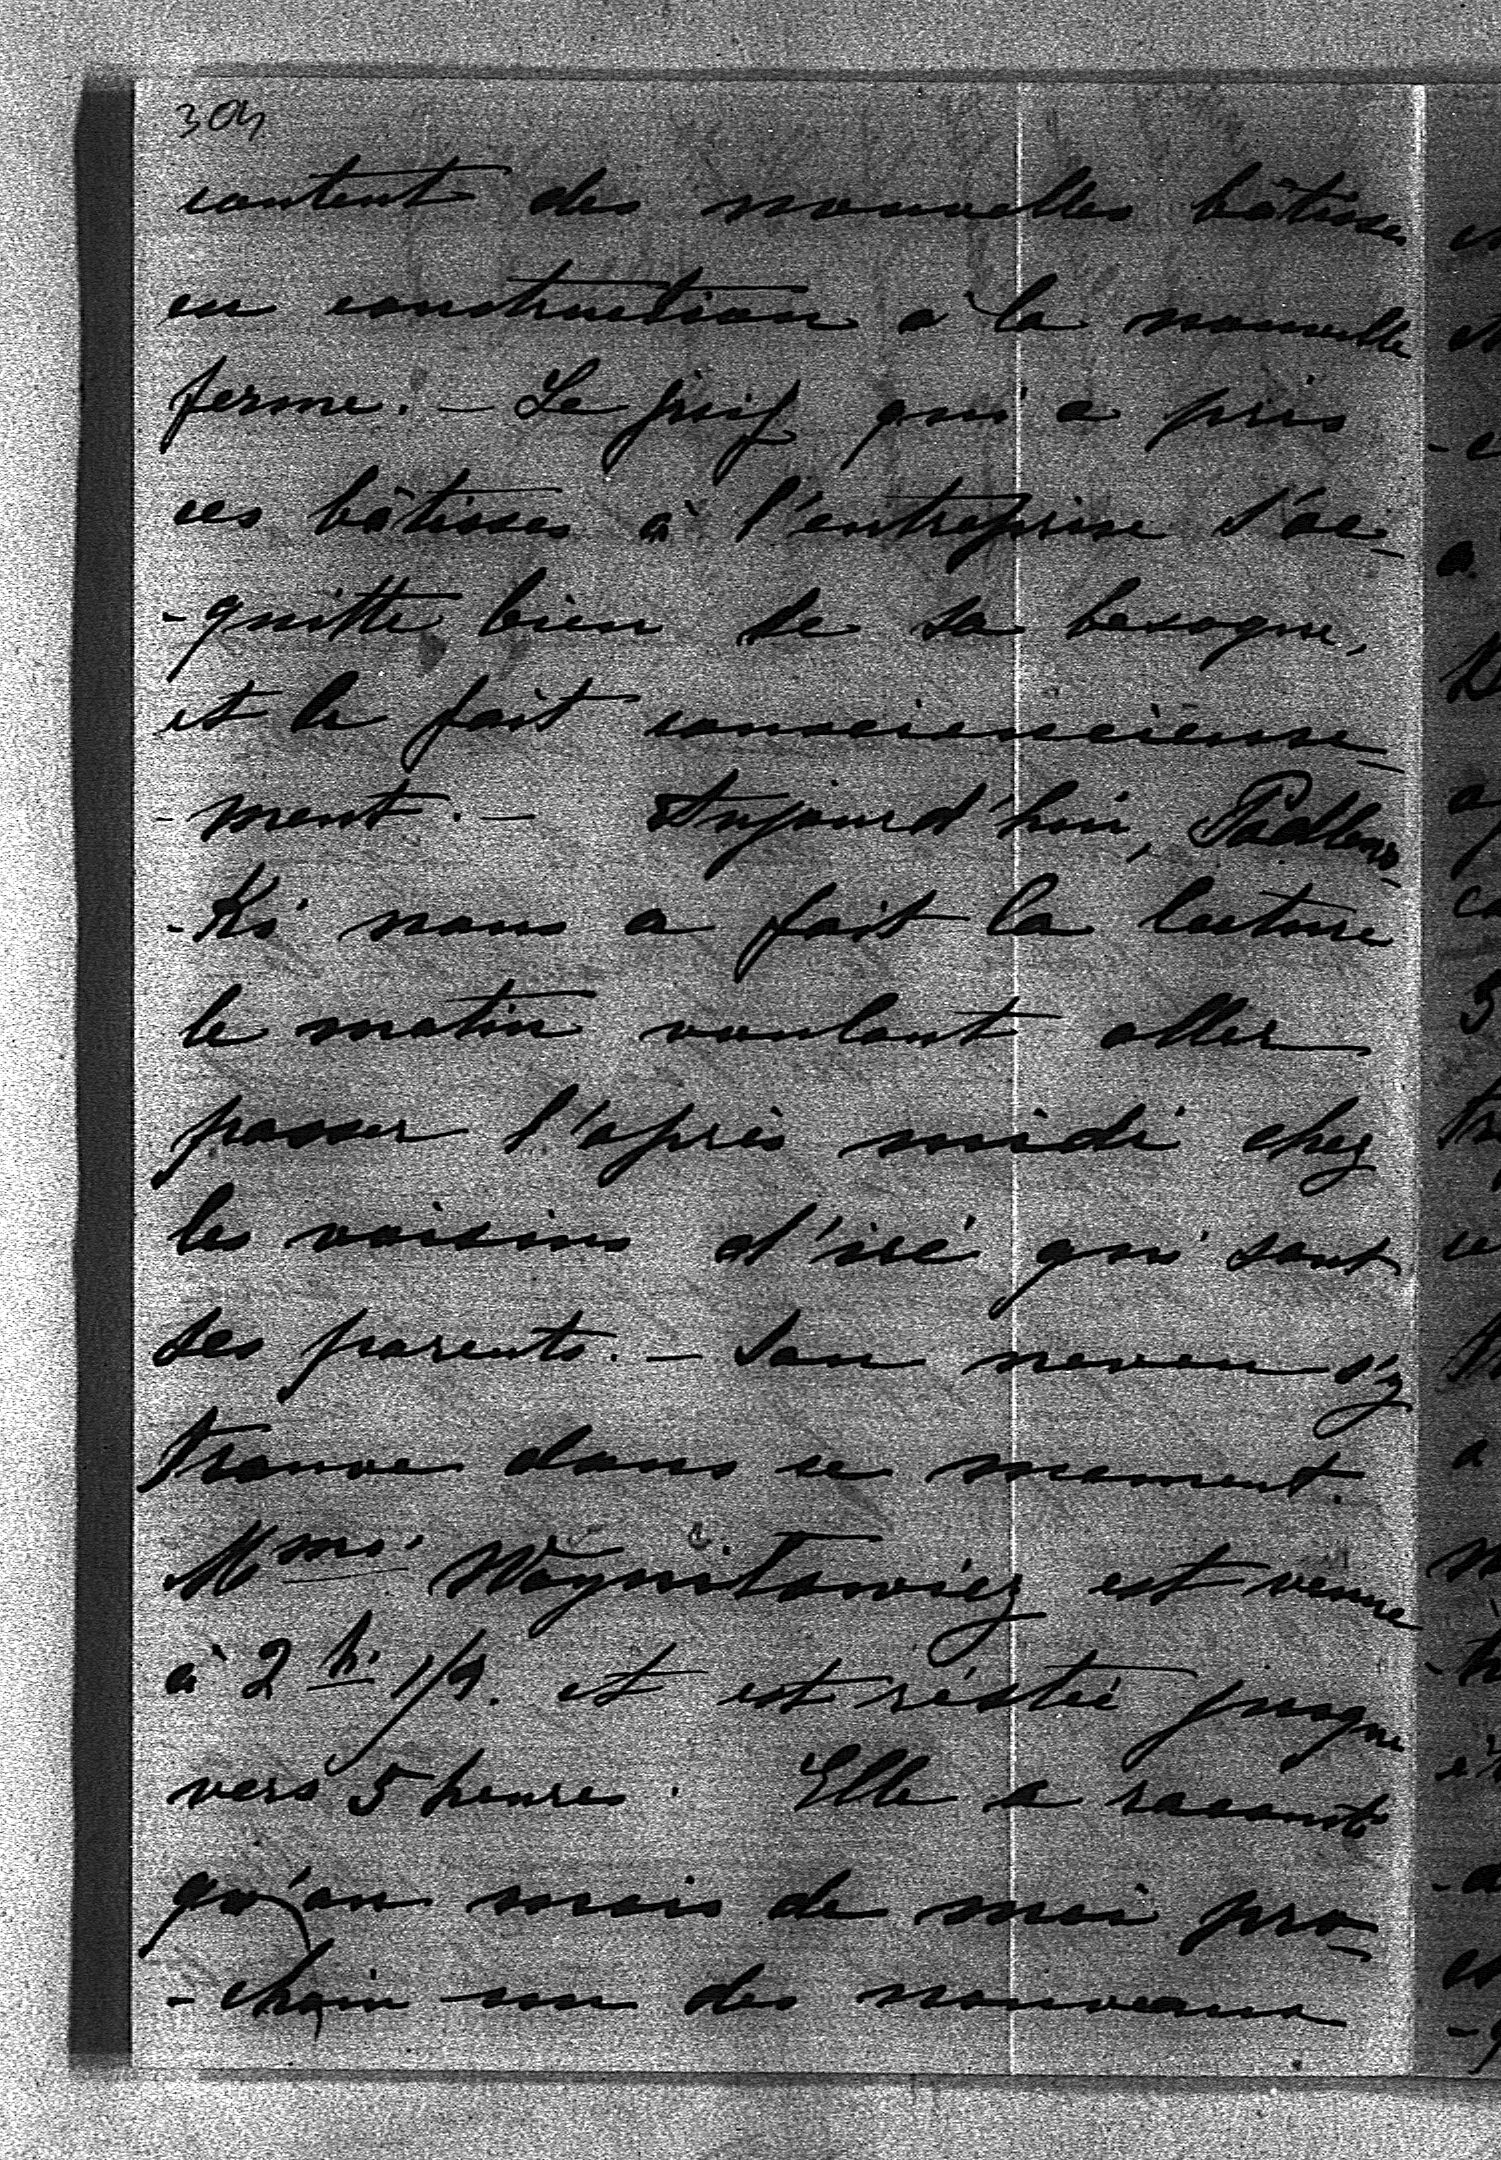 304
content des nouvelles bâtisses
en construction à la nouvelle
ferme. — Le juif qui a pris
ces bâtisses à l'entreprise s'ac-
-quitte bien de sa besogne,
et le fait consciencieuse-
-ment. — Aujourd'hui, Podlews-
-Ki nous a fait la lecture
le matin voulant aller
passer l'après midi chez
les voisins d'ici qui sont
ses parents. — Son neveu s'y
trouve dans ce moment.
Mme. Woynitowicz est venue
à 2 h. 1/2. et est réstée jusque
vers 5 heures. Elle a raconté
qu'au mois de mai pro-
-chain un des nouveaux